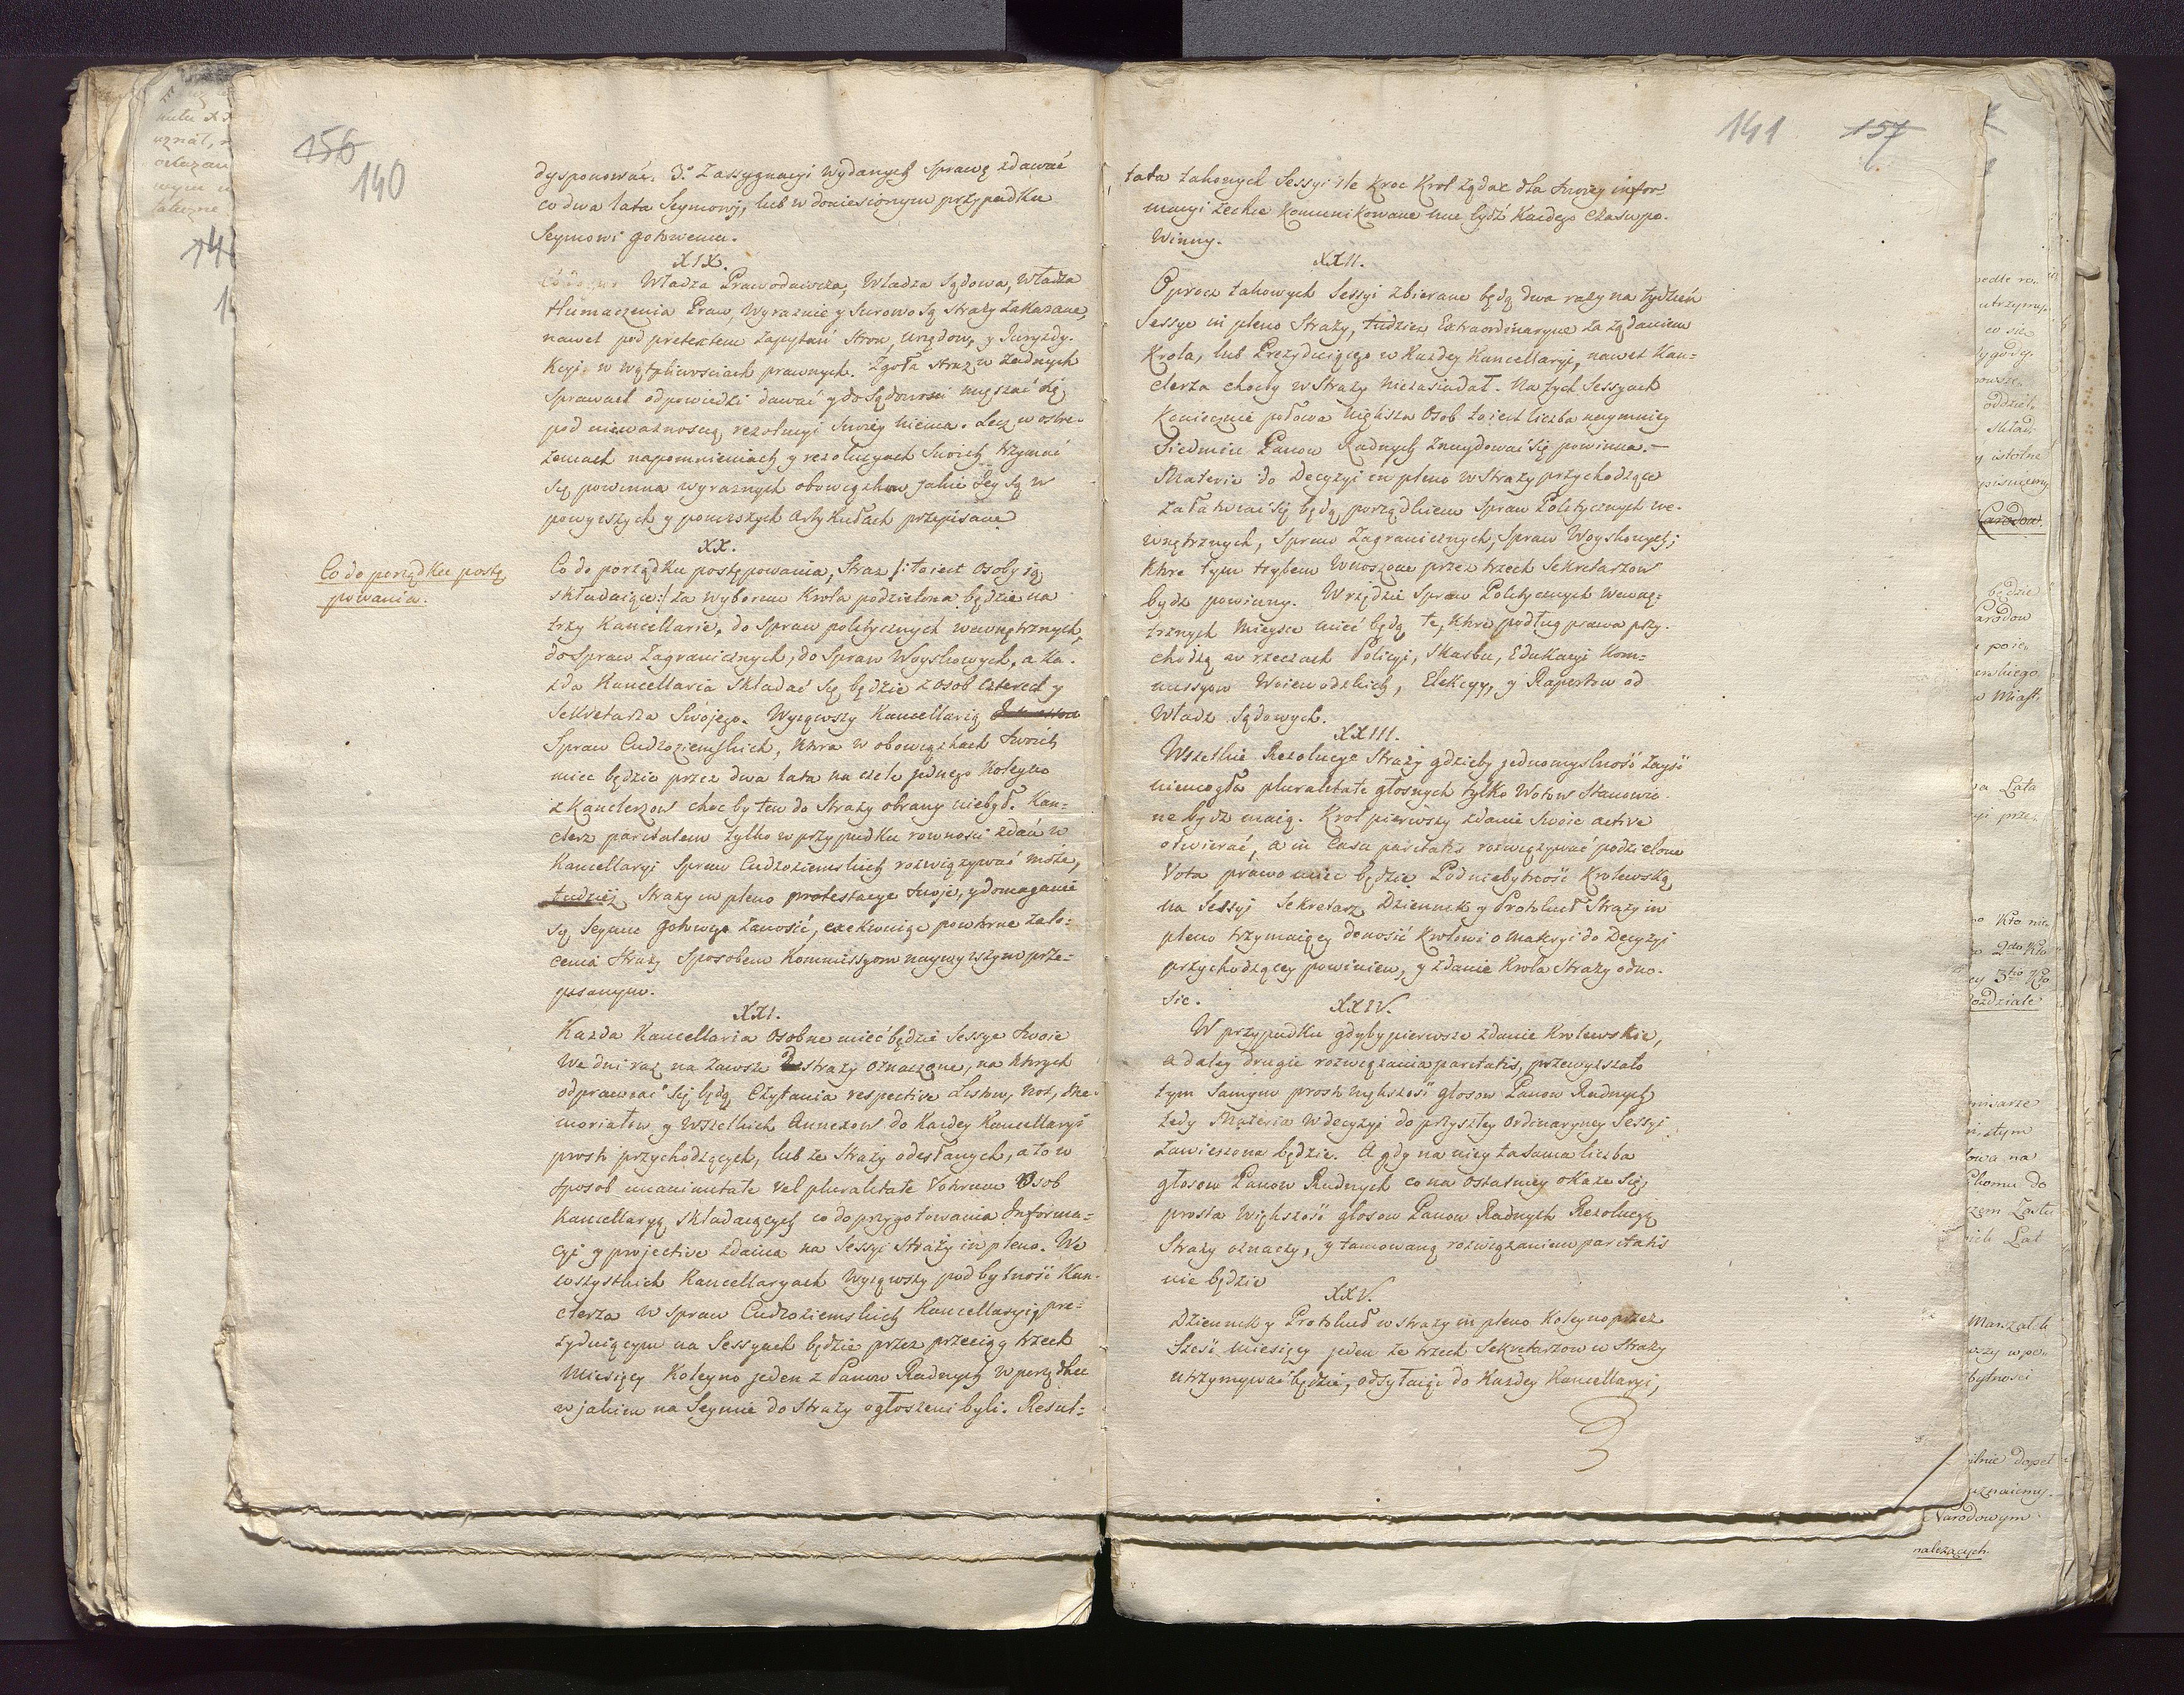 156
140
dysponować. 3.o Z assygnacyi wydanych sprawę zdawać
co dwa lata Seymowy, lub w doniesionym przypadku
Seymowi gotowemu.
XIX.
Władza Prawodawcza, Władza Sądowa, Władza
tłumaczenia Praw, wyraznie y surowo są straży zakazane,
nawet pod pretextem zapytań stron, urzędow, y Juryzdy-
kcyi w wątpliwosciach prawnych. Zgoła straz w zadnych
sprawach odpowiedzi dawać y do sądownosci mięszać się
pod niewaznoscią rezolucyi swoiey niema. Lecz w ostrze-
zeniach napomnieniach y rezolucyach swoich trzymać
się powinna wyraznych obowiązkow jakie Jey są w
powyzszych y ponizszych Artykułach przepisane
XX.
Co do porządku postę
powania.
Co do porządku postępowania, Straz /: to iest osoby ią
składaiące :/ za wyborem Krola podzielona będzie na
trzy Kancellarie, do Spraw politycznych wewnętrznych,
do Spraw Zagranicznych, do Spraw Woyskowych, a ka-
zda Kancellaria składać się będzie z osob czterech y
Sekretarza Swojego. Wyiąwszy Kancellarią
Spraw Cudzoziemskich, ktora w obowiązkach swoich
miec będzie przez dwa lata na czele jednego koleyno
z Kanclerzow choc by ten do Straży obrany niebył. Kan-
clerz paritatem tylko w przypadku rownosci zdań w
Kancellaryi Spraw Cudzoziemskich rozwiązywać może,
tudziez Straży in pleno protestacye swoje, y domaganie
się Seymu gotowego zanosić, exekwuiąc powtorne zale-
cenia Straży sposobem Kommissyom naywyzszym prze-
pisanym.
XXI.
Kazda Kancellaria osobne mieć będzie Sessye swoje
we dni raz na zawsze w straży oznaczone, na ktorych
odprawiać się będą czytania respective Listow, not, Me-
moriałow y wszelkich Annexow do kazdey Kancellaryi
prosto przychodzących, lub ze Straży odesłanych, a to w
sposob unanimitate vel pluralitate Votorum Osob
Kancellaryą składaiących co do przygotowania Informa-
cyi y projective zdania na Sessyi Straży in pleno. We
wszystkich Kancellaryach wyiąwszy pod bytność Kan-
clerza w spraw Cudzoziemskich Kancellaryią pre-
zyduiącym na Sessyach będzie przez przeciąg trzech
Miesięcy koleyno jeden z Panow Radnych w porządku
w jakim na Seymie do straży ogłoszeni byli. Resul-
141
157
tata takowych Sessyi ile kroc Krol żądac dla swoiey infor-
macyi zechce kommunikowane mu bydź kazdego czasu po-
winny.
XXII.
Oprocz takowych Sessyi zbierane będą dwa razy na tydzień
Sessye in pleno Straży, tudziez Extraordinaryine za żądaniem
Krola, lub Prezyduiącego w kazdey Kancellaryi, nawet Kan-
clerza choćby w Straży niezasiadał. Na tych Sessyach
koniecznie połowa większa osob to iest liczba naymniey
Siedmiu Panow Radnych znaydować się powinna. —
Materie do Decyzyi in pleno w Straży przychodzące
załatwiać się będą porządkiem Spraw Politycznych we-
wnętrznych, Spraw Zagranicznych, Spraw Woyskowych;
ktore tym trybem wnoszone przez trzech Sekretarzow
bydz powinny. W rzędzie Spraw Politycznych wewnę-
trznych mieysce mieć będą te, ktore podług prawa przy-
chodzą w rzeczach Policyi, Skarbu, Edukacyi Kom-
missyow Woiewodzkich, Elekcyi, y Raportow od
Władz Sądowych.
XXIII.
Wszelkie Rezolucye Straży gdzieby jednomyslność zayść
niemogła pluralitate głosnych tylko Wotow stanowio-
ne bydz maią. Krol pierwszy zdanie swoie active
otwierać, a in casu paritatis rozwiązywać podzielone
Vota prawo miec będzie. Pod niebytność Krolewską
na Sessyi Sekretarz Dziennik y Protokuł Straży in
pleno trzymaiący donosić Krolowi o materyi do Decyzyi
przychodzącey powinien, y zdanie Krola Straży odno-
sic.
XXIV.
W przypadku gdyby pierwsze zdanie Krolewskie,
a daley drugie rozwiązania paritatis, przewyzszało
tym samym prosto większość głosow Panow Radnych
tedy Materia w decyzyi do przyszłey ordinaryiney Sessyi
zawieszona będzie. A gdy na niey ta sama liczba
głosow Panow Radnych co na ostatniey okaze się
prosta większość głosow Panow Radnych Rezolucyą
Straży oznaczy, y tamowaną rozwiązaniem paritatis
nie będzie
XXV.
Dziennik y Protokuł w straży in pleno koleyno przez
Sześć miesięcy jeden ze trzech Sekretarzow w Straży
utrzymywać będzie, odsyłaiąc do kazdey Kancellaryi,